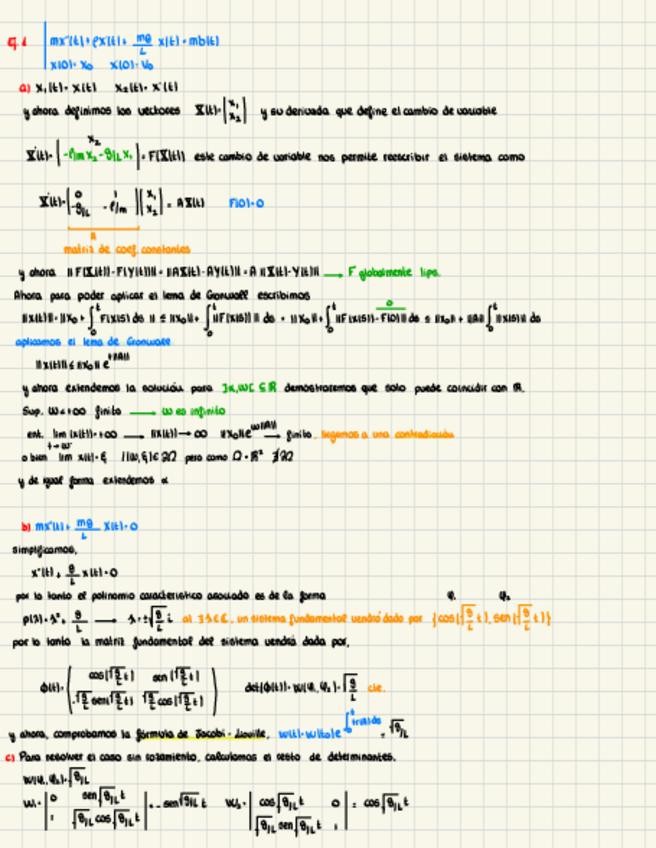 Ej. 1 mx''(t) + ρx'(t) + mg/L x(t) = mb(t)
x(0) = x₀ x'(0) = v₀
a) x₁(t) = x(t) x₂(t) = x'(t)
y ahora definimos los vectores X(t) = |x₁ x₂| y su derivada que define el cambio de variable
X'(t) = |x₂ -ρ/m x₂ - g/L x₁| = F(X(t)) este cambio de variable nos permite reescribir el sistema como
X'(t) = |0 1 -g/L -ρ/m| |x₁ x₂| = A X(t) F(0) = 0
A
matriz de coef. constantes
y ahora ||F(X(t)) - F(Y(t))|| = ||AX(t) - AY(t)|| = A ||X(t) - Y(t)|| → F globalmente lips.
Ahora para poder aplicar el lema de Gronwall escribimos
||x(t)|| = ||x₀ + ∫₀ᵗ F(x(s)) ds|| ≤ ||x₀|| + ∫₀ᵗ ||F(x(s))|| ds = ||x₀|| + ∫₀ᵗ ||F(x(s)) - F(0)|| ds ≤ ||x₀|| + ||A|| ∫₀ᵗ ||x(s)|| ds
0
aplicamos el lema de Gronwall
||x(t)|| ≤ ||x₀|| e^{t||A||}
y ahora extendemos la solución para ]α,ω[ ⊆ ℝ demostraremos que solo puede coincidir con ℝ.
Sup. ω < +∞ finito → ω es infinito
ent. lim ||x(t)|| = +∞ → ||x(t)|| → ∞ ||x₀|| e^{ω||A||} → finito. llegamos a una contradicción
t→ω⁻
o bien lim x(t) = ξ (ω,ξ) ∈ ∂Ω pero como Ω = ℝ² ∄ ∂Ω
y de igual forma extendemos α
b) mx''(t) + mg/L x(t) = 0
simplificamos,
x''(t) + g/L x(t) = 0
por lo tanto el polinomio característico asociado es de la forma φ₁ φ₂
p(λ) = λ² + g/L → λ = ±√(g/L) i al ser λ ∈ ℂ, un sistema fundamental vendrá dado por {cos(√(g/L) t), sen(√(g/L) t)}
por lo tanto la matriz fundamental del sistema vendrá dada por,
ϕ(t) = (cos(√(g/L) t) sen(√(g/L) t) -√(g/L) sen(√(g/L) t) √(g/L) cos(√(g/L) t)) det(ϕ(t)) = W(φ₁,φ₂) = √(g/L) cte.
y ahora, comprobamos la fórmula de Jacobi-Liouville, W(t) = W(t₀) e^{∫₀ᵗ tr(A) ds} = √(g/L)
c) Para resolver el caso sin rozamiento, calculamos el resto de determinantes.
W(φ₁,φ₂) = √(g/L)
W₁ = |0 sen√(g/L) t 1 √(g/L) cos√(g/L) t| = -sen√(g/L) t W₂ = |cos√(g/L) t 0 √(g/L) sen√(g/L) t 1| = cos√(g/L) t